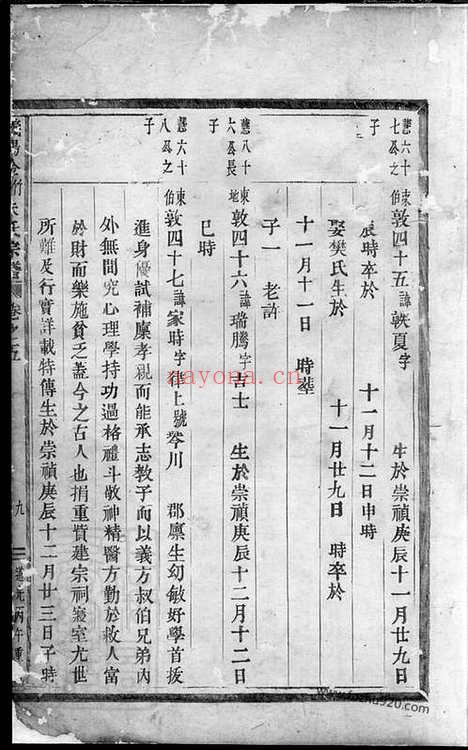 敦四十五諱 夏字 生於崇禎庚辰十一月廿九日
辰時卒於 十一月十二日申時
娶樊氏生於 十一月廿九日 時卒於
十一月十一日 時葬
子一 老許
敦四十六諱瑞騰字吉士 生於崇禎庚辰十二月十二日
巳時
敦四十七諱家時字律上號琴川 郡廪生幼敏好學首拔
進身優試補廪孝親而能承志教子而以義方叔伯兄弟內
外無間究心理學持功過格禮斗敬神精醫方勤於救人富
於財而樂施貧乏蓋今之古人也捐重貲建宗祠寢室尤世
所難及行實詳載特傳生於崇禎庚辰十二月廿三日子時
六十
七公之
子
八十
六公長
子
六十
八公之
子
氏宗譜 卷之五
九
道光丙午重
nayona.cn